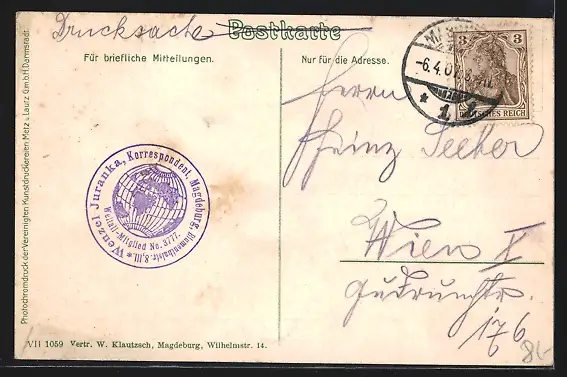 Drucksache Postkarte
Für briefliche Mitteilungen.
Nur für die Adresse.
3 3
DEUTSCHES REICH
-6.4.07.
* 1
Herrn
Heinz
Wien X
Gudrunstr.
176
Wenzel Juranka, Korrespondent, Magdeburg,
Weltall-Mitglied No. 3777.
Photochromdruck der Vereinigten Kunstdruckereien Metz & Lautz G.m.b.H. Darmstadt.
VII 1059 Vertr. W. Klautzsch, Magdeburg, Wilhelmstr. 14.